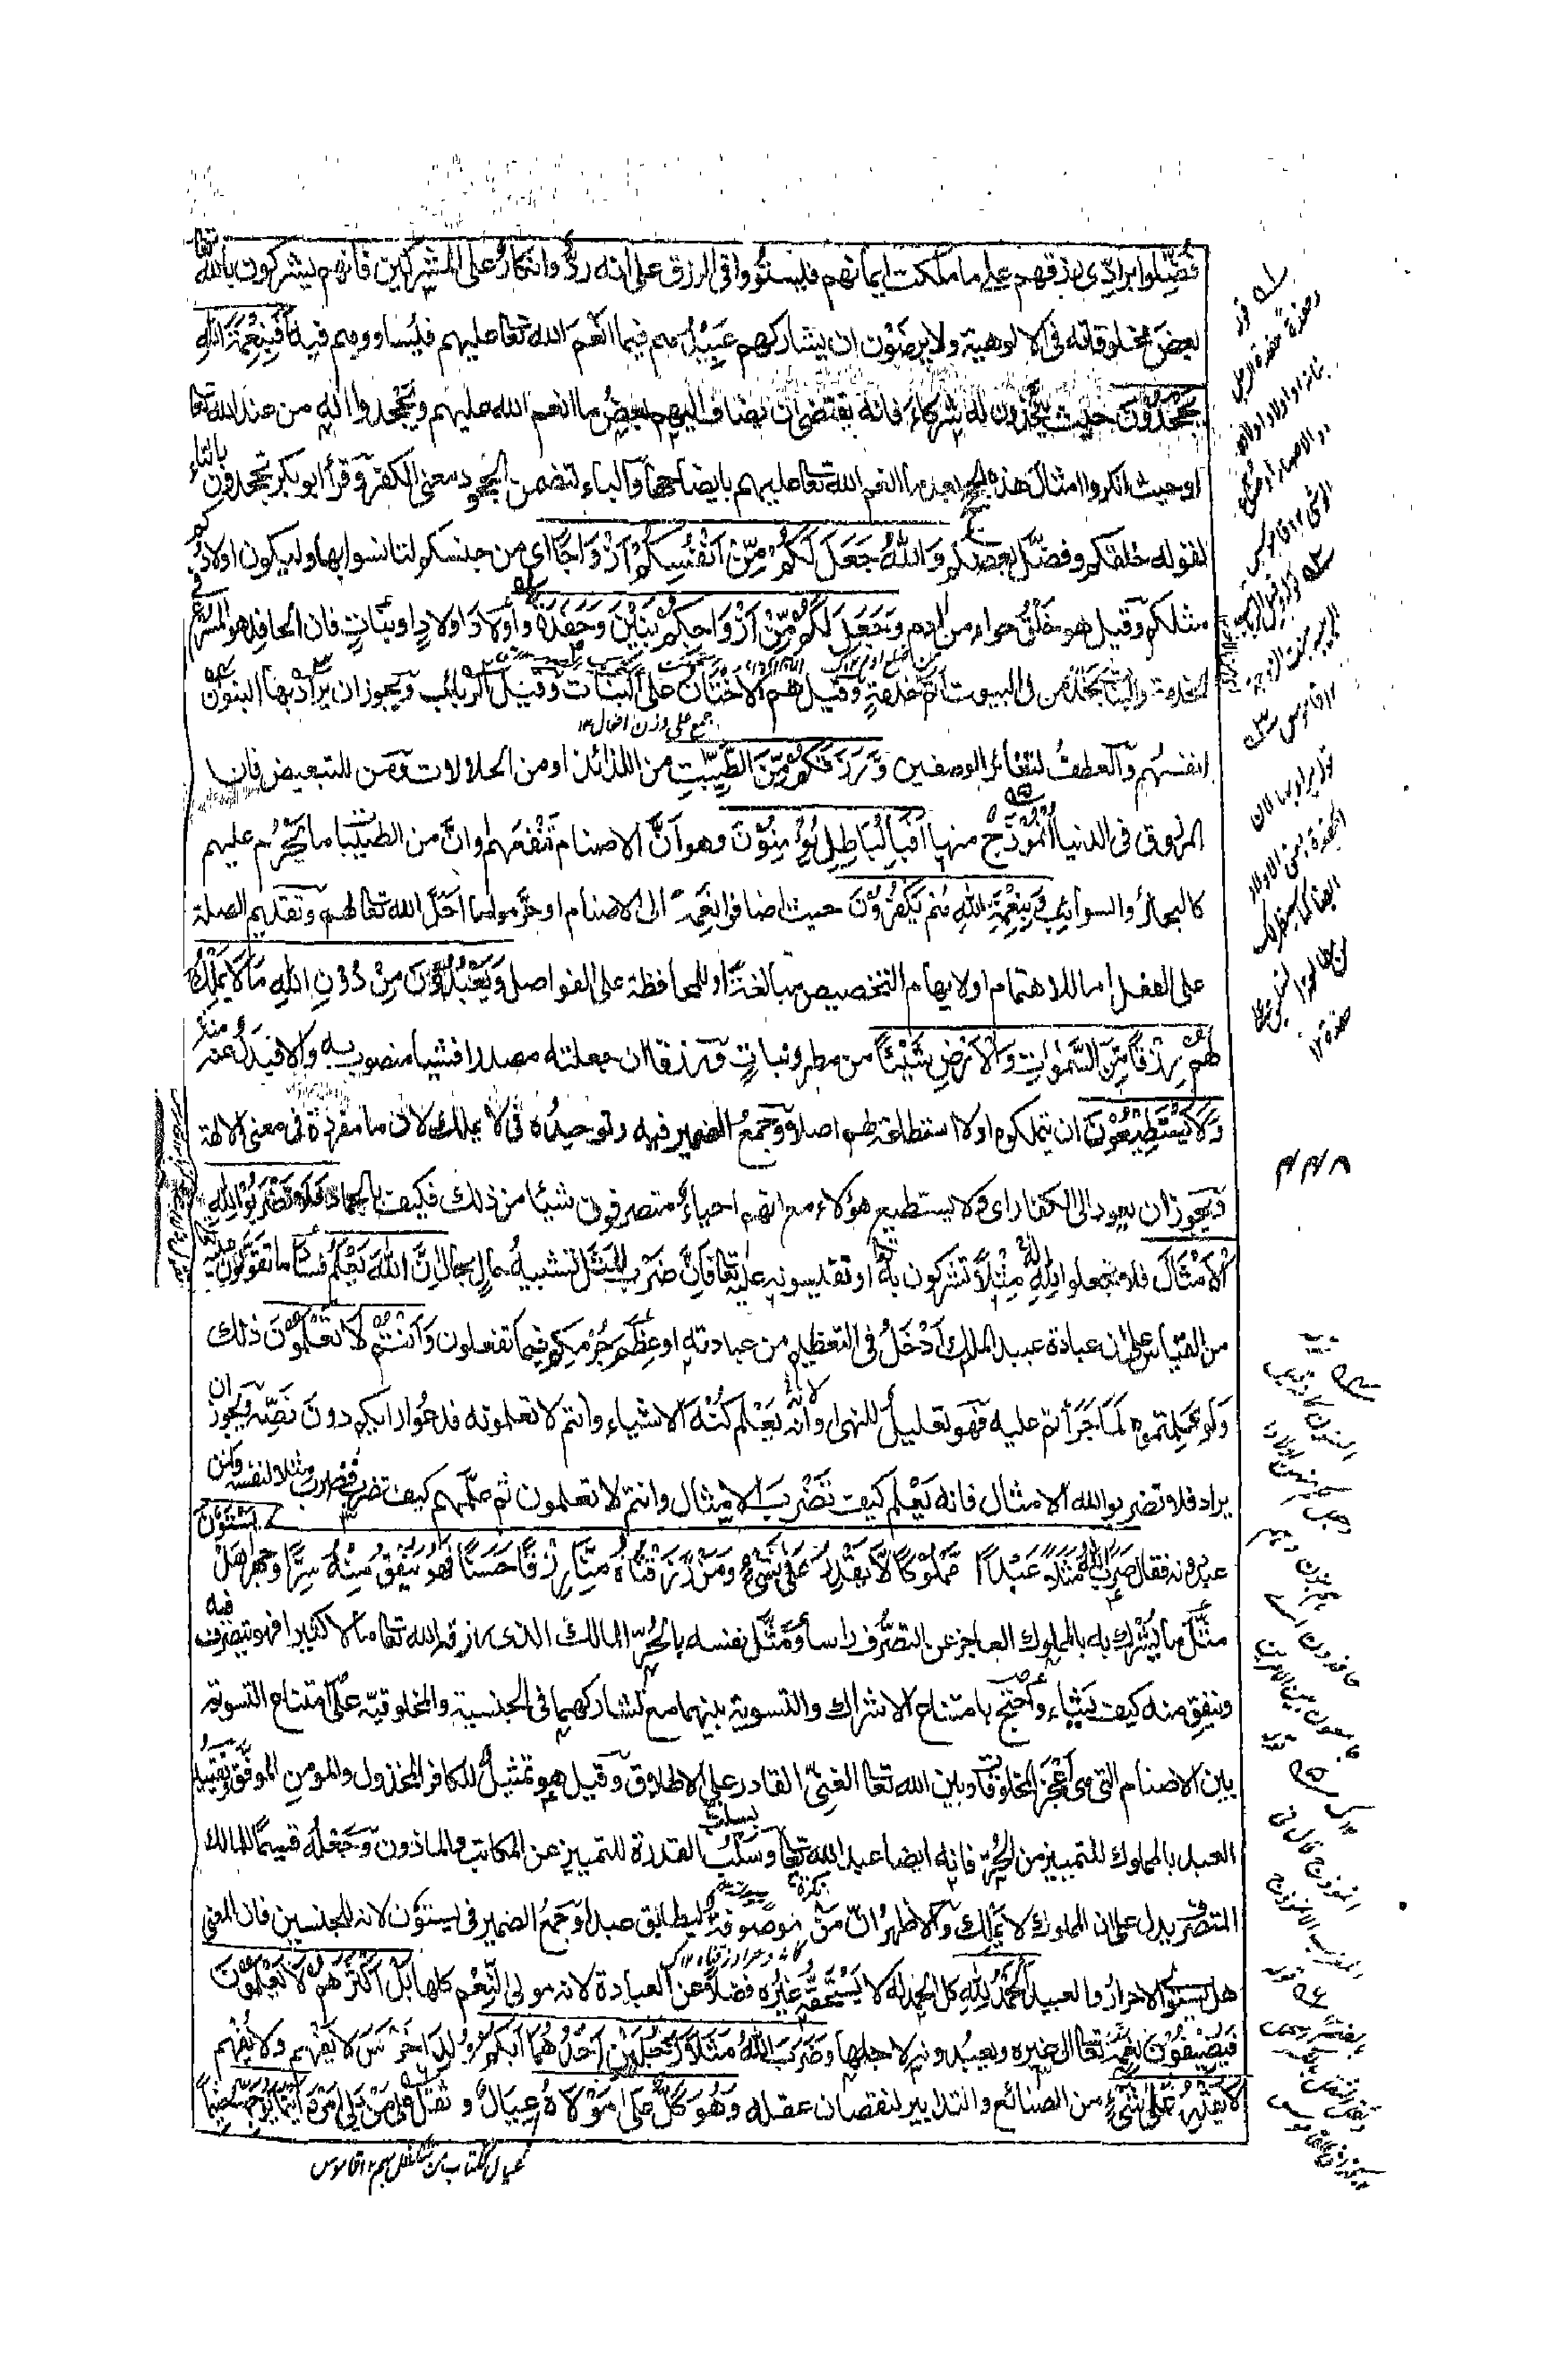 فُضِّلوا برادّي رزقهم على ما ملكت ايمانهم فليستووا في الرزق على انه ردٌّ وانكارٌ على المشركين فانهم يشركون بالله تعا
بعضَ مخلوقاته في الالوهية ولا يرضَون ان يشاركهم عَبيدُهم فيما انعَم الله تعا عليهم فيُساووهم فيه اَفَبِنِعْمَةِ اللهِ
يَجْحَدُوْنَ حيث يتخذون له شركاءَ فانه يقتضي ان يضاف اليهم بعضُ ما انعم الله عليهم ويَجحدوا انه من عند الله تعا
او حيث انكروا امثال هذه الحجج بعد ما انعم الله تعا عليهم بايضاحها والباء لتضمن الجحود معنى الكفر وقرأ ابو بكر تجحدون بالتاء
لقوله خلقكم وفضّل بعضكم وَاللهُ جَعَلَ لَكُمْ مِّنْ اَنْفُسِكُمْ اَزْوَاجًا اي من جنسكم لتأنسوا بها وليكون اولادُكم
مثلكم وقيل هو خَلْقُ حواء من ادم وَجَعَلَ لَكُمْ مِّنْ اَزْوَاجِكُمْ بَنِيْنَ وَحَفَدَةً واَولادَ اولادٍ او بناتٍ فان الحافد هو المسرع في
الخدمة والبنات يخدمن في البيوت اتم خدمةٍ وقيل هم الاَخْتانُ على البنات وقيل الربائب ويجوز ان يراد بها البنون
جمع على وزن افعال ١٢
انفسُهم والعطفُ لتغائر الوصفين وَرَزَقَكُمْ مِّنَ الطَّيِّبٰتِ من اللذائذ او من الحلالات ومن للتبعيض فان
المرزوق في الدنيا اُنموذجٌ منها اَفَبِالْبَاطِلِ يُؤْمِنُوْنَ وهو اَنَّ الاصنام تَنْفَعهم او انَّ من الطيبات ما يَحْرُم عليهم
كالبحائر والسوائب وَبِنِعْمَةِ اللهِ هُمْ يَكْفُرُوْنَ حيث اضافوا نِعَمه الى الاصنام او حرّموا ما احَلَّ الله تعا لهم وتقديم الصلة
على الفعل اما للاهتمام او لايهام التخصيص مبالغةً او للمحافظة على الفواصل وَيَعْبُدُوْنَ مِنْ دُوْنِ اللهِ مَا لَا يَمْلِكُ
لَهُمْ رِزْقًا مِّنَ السَّمٰوٰتِ وَالْاَرْضِ شَيْئًا من مطر ونباتٍ ورزقا ان جعلته مصدرا فشيأ منصوب به والا فبدلٌ منه
وَّلَا يَسْتَطِيْعُوْنَ ان يتملكوه او لا استطاعة لهم اصلا وجَمعُ الضمير فيه وتوحيدُه في لا يملك لان ما مفردة في معنى الالهة
ويجوز ان يعود الى الكفار اي ولا يستطيع هؤلاء مع انهم احياءٌ متصرفون شيئا من ذلك فكيف بالجماد فَلَا تَضْرِبُوْا لِلّٰهِ
الْاَمْثَالَ فلا تجعلوا لِلهِ مثلا تشركون به او تقيسونه عليه تعا فانَّ ضَرْب المثل تشبيهُ حالٍ بحال اِنَّ اللهَ يَعْلَمُ فسادَ ما تقولون عليه
من القياس على ان عبادة عبيد الملك اَدْخَلُ في التعظيم من عبادته او عِظَمَ جُرمكم فيما تفعلون وَاَنْتُمْ لَا تَعْلَمُوْنَ ذلك
ولو علمتموه لَمَا جَرَأتم عليه فهو تعليلٌ للنهي او انه يَعْلم كُنْهَ الاشياء وانتم لا تعلمونه فدَعُوا رايكم دونَ نَصّه ويجوز ان
يراد فلا تضربوا لله الامثال فانه يَعْلم كيف تَضْرِبَ الامثال وانتم لا تعلمون ثم علّمهم كيف تضرب فضرب مثلا لنفسه ولمن
عبد دونه فقال ضَرَبَ اللهُ مَثَلًا عَبْدًا مَّمْلُوْكًا لَّا يَقْدِرُ عَلٰى شَيْءٍ وَّمَنْ رَّزَقْنٰهُ مِنَّا رِزْقًا حَسَنًا فَهُوَ يُنْفِقُ مِنْهُ سِرًّا وَّجَهْرًا هَلْ يَسْتَوٗنَ
مَثَّل ما يُشْرَك به بالمملوك العاجز عن التصرُّف راسا ومَثَّل نفسه بالحُرّ المالك الذي رزقه الله تعا مالا كثيرا فهو يتصرف فيه
وينفق منه كيف يشاء واحتج بامتناع الاشراك والتسوية بينهما مع تشاركهما في الجنسية والمخلوقية على امتناع التسوية
بين الاصنام التي هي اَعْجَز المخلوقات وبين الله تعا الغنيّ القادر على الاطلاق وقيل هو تمثيلٌ للكافر المخذول والمؤمن الموفّق وتقييدُ
العبد بالمملوك للتمييز من الحُرّ فانه ايضا عبد الله تعا وسَلْبُ القدرة للتمييز عن المكاتب والماذون وجَعْلُه قسيمًا للمالك
المتصرف يدل على ان المملوك لا يَملِك والاظهر انّ مَنْ موصوفة ليطابق عبدا وجَمعُ الضمير في يستوٗن لانه للجنسين فان المعنى
هل يستوي الاحرارُ والعبيد اَلْحَمْدُ لِلّٰهِ كل الحمد له لا يَسْتحقّه غيرُه فضلا عن العبادة لانه مولى النِّعَم كلها بَلْ اَكْثَرُهُمْ لَا يَعْلَمُوْنَ
فيُضيفون نعمه تعا الى غيره ويعبُدونه لاجلها وَضَرَبَ اللهُ مَثَلًا رَّجُلَيْنِ اَحَدُهُمَا اَبْكَمُ وُلد اَخْرَسَ لا يَفْهم ولا يُفْهِم
لَا يَقْدِرُ عَلٰى شَيْءٍ من الصنائع والتدابير لنقصان عقله وَّهُوَ كَلٌّ عَلٰى مَوْلٰىهُ عِيالٌ و ثقل على من يلي امره اَيْنَمَا يُوَجِّهْهُ
٤٤٨